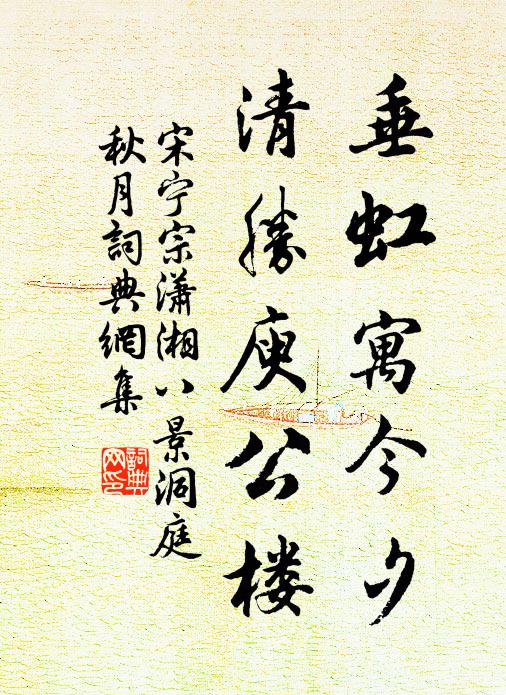 垂虹寓今夕
清勝庾公楼
宋宁宗瀟湘八景洞庭
秋月詞典網集
詞典网印